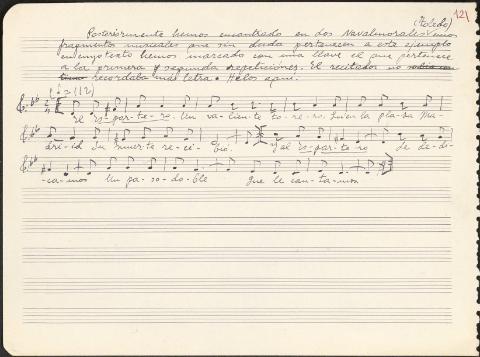 (Toledo)
121
Posteriormente hemos encontrado en dos Navalmorales unos
fragmentos musicales que sin duda pertenecen a este ejemplo
en cuyo texto hemos marcado con una llave el que pertenece
a la primera y segunda repeticiones. El recitador no
recordaba más letra. Helos aquí.
(♩=112)
El Es-par-te-ro. Un va-lien-te to-re-ro. Su en la pla-za Ma-
drid Su muer-te re-ci-bió. Y al Es-par-te-ro le de-di-
-ca-mos Un pa-so-do-ble Que le can-ta-mos